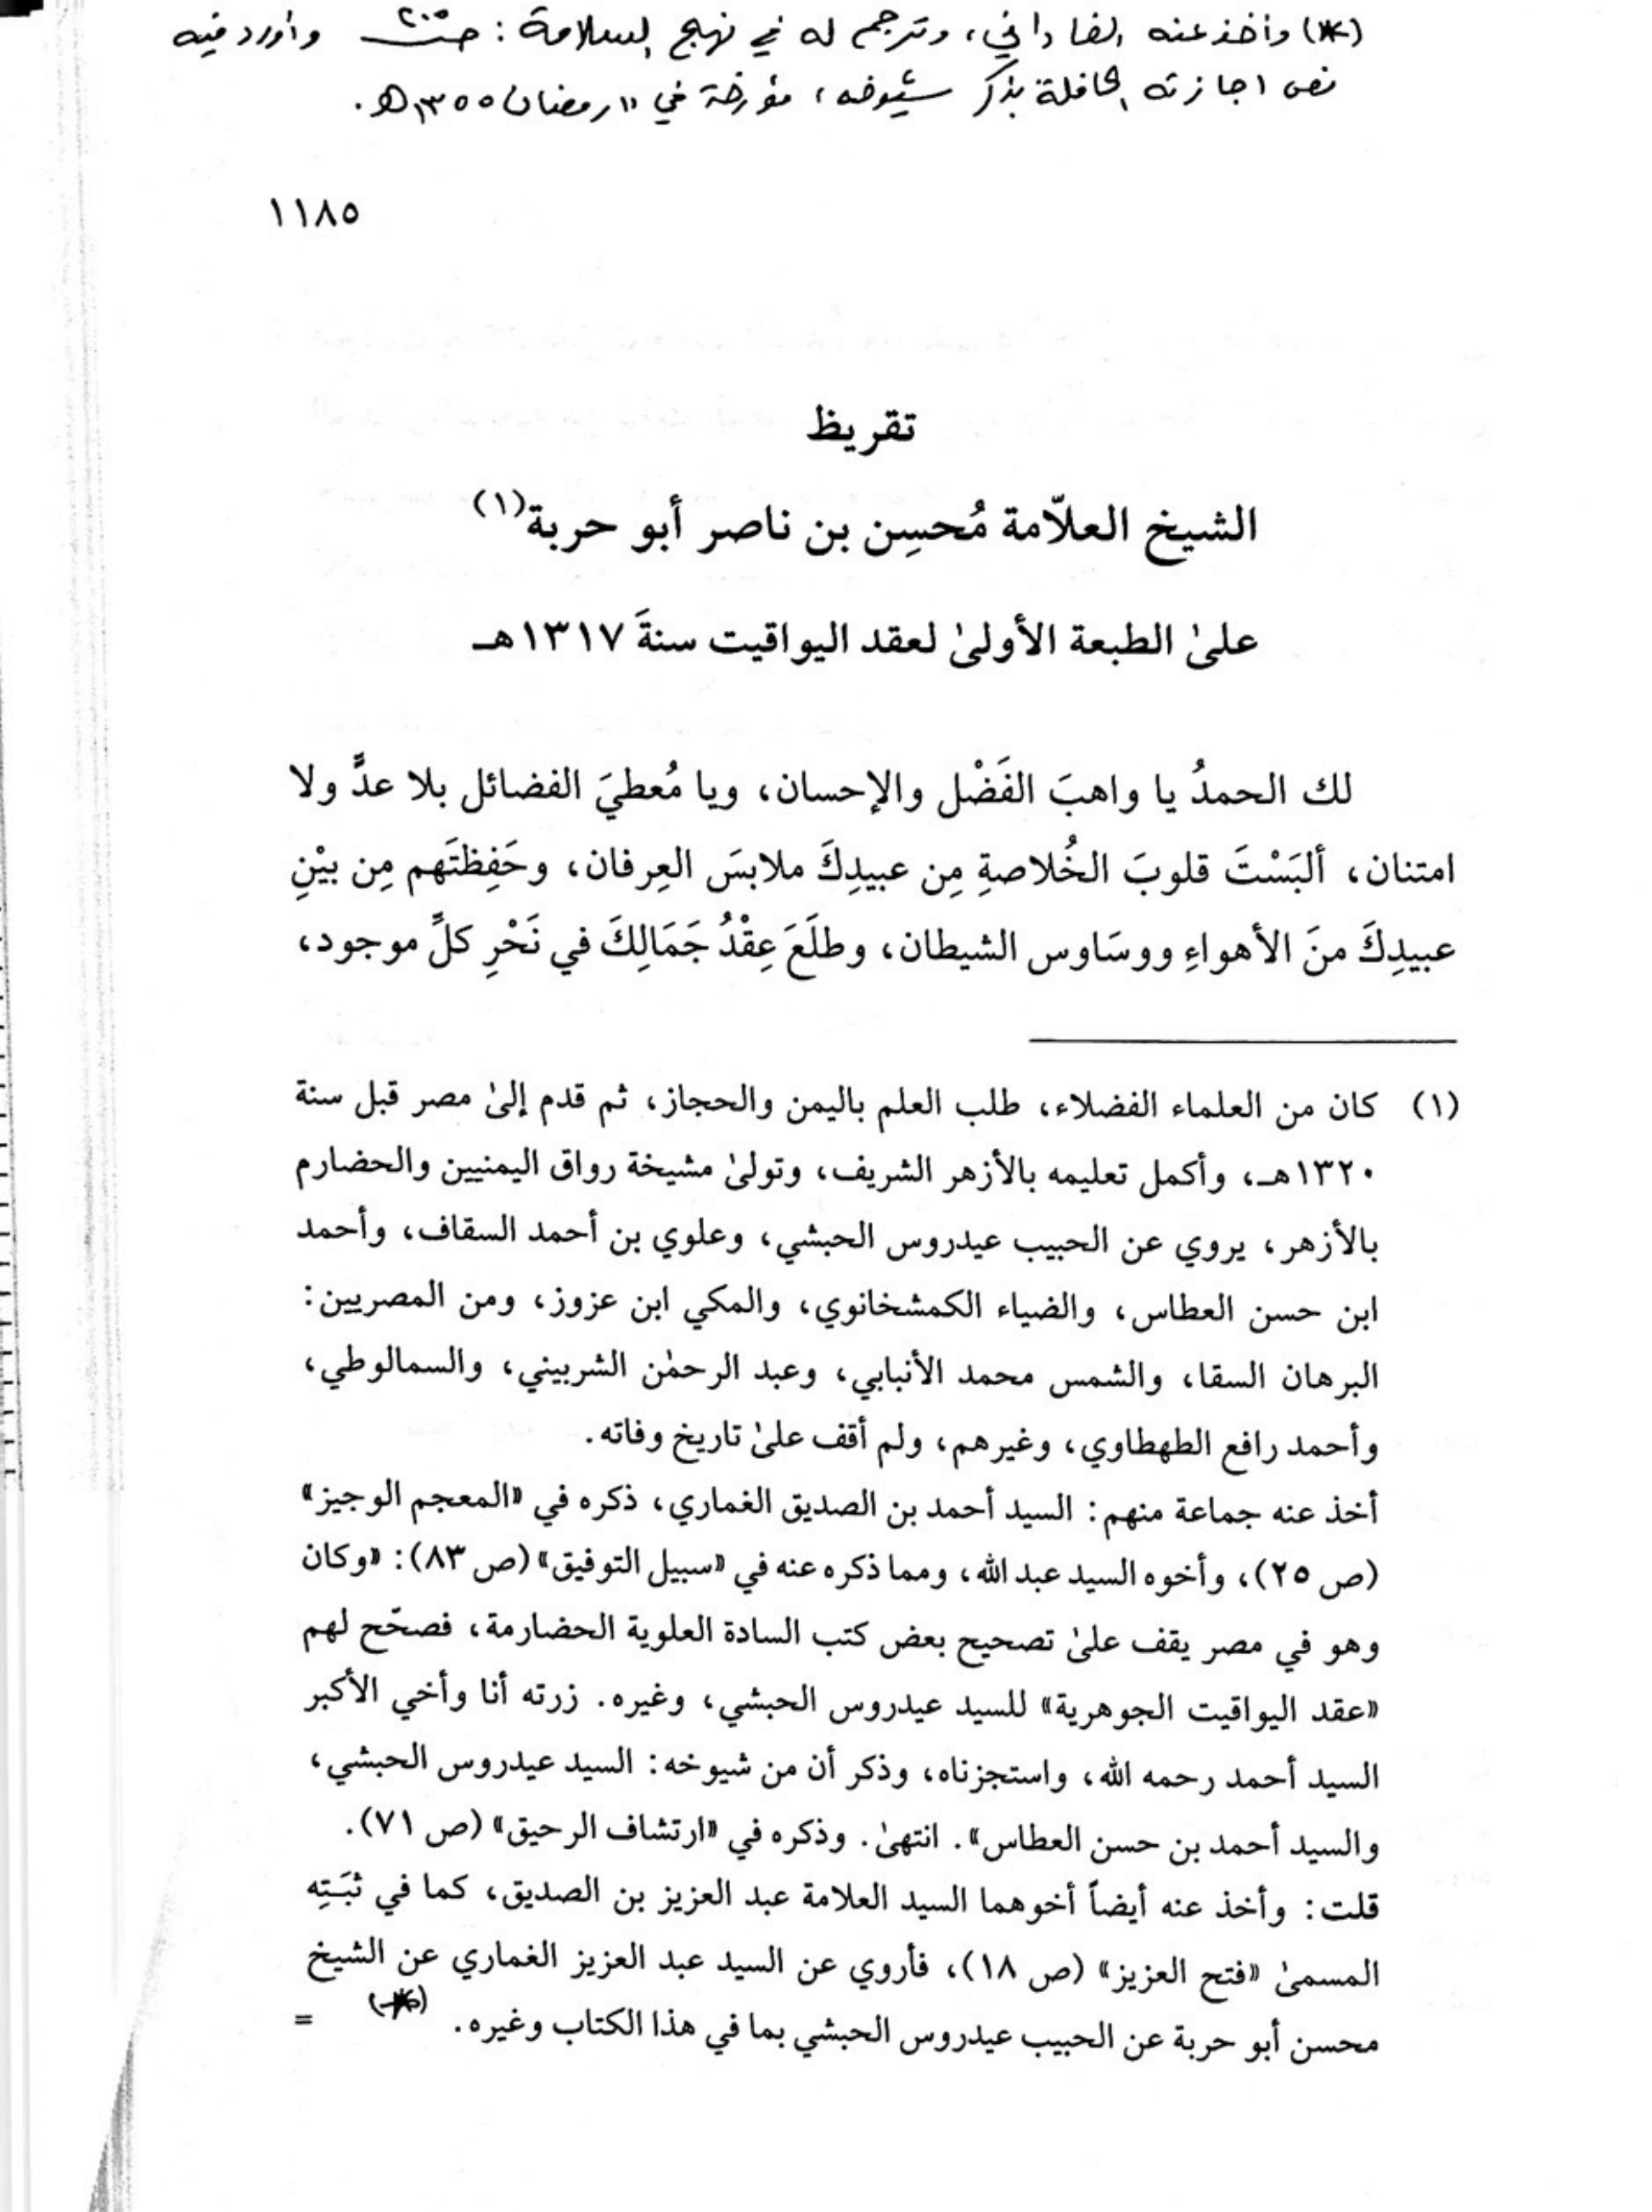 (*) وأخذ عنه الفاداني، وترجم له في نهج السلامة: صـ٢٠٥ وأورد فيه
نص اجازته الحافلة بذكر شيوخه، مؤرخة في ١١ رمضان ١٣٥٥هـ.
١١٨٥
تقريظ
الشيخ العلّامة مُحسِن بن ناصر أبو حربة(١)
علىٰ الطبعة الأولىٰ لعقد اليواقيت سنةَ ١٣١٧هـ
لك الحمدُ يا واهبَ الفَضْل والإحسان، ويا مُعطيَ الفضائل بلا عدٍّ ولا
امتنان، ألبَسْتَ قلوبَ الخُلاصةِ مِن عبيدِكَ ملابسَ العِرفان، وحَفِظتَهم مِن بيْنِ
عبيدِكَ منَ الأهواءِ ووسَاوس الشيطان، وطلَعَ عِقْدُ جَمَالِكَ في نَحْرِ كلِّ موجود،
(١) كان من العلماء الفضلاء، طلب العلم باليمن والحجاز، ثم قدم إلىٰ مصر قبل سنة
١٣٢٠هـ، وأكمل تعليمه بالأزهر الشريف، وتولىٰ مشيخة رواق اليمنيين والحضارم
بالأزهر، يروي عن الحبيب عيدروس الحبشي، وعلوي بن أحمد السقاف، وأحمد
ابن حسن العطاس، والضياء الكمشخانوي، والمكي ابن عزوز، ومن المصريين:
البرهان السقا، والشمس محمد الأنبابي، وعبد الرحمٰن الشربيني، والسمالوطي،
وأحمد رافع الطهطاوي، وغيرهم، ولم أقف علىٰ تاريخ وفاته.
أخذ عنه جماعة منهم: السيد أحمد بن الصديق الغماري، ذكره في «المعجم الوجيز»
(ص ٢٥)، وأخوه السيد عبد الله، ومما ذكره عنه في «سبيل التوفيق» (ص ٨٣): «وكان
وهو في مصر يقف علىٰ تصحيح بعض كتب السادة العلوية الحضارمة، فصحّح لهم
«عقد اليواقيت الجوهرية» للسيد عيدروس الحبشي، وغيره. زرته أنا وأخي الأكبر
السيد أحمد رحمه الله، واستجزناه، وذكر أن من شيوخه: السيد عيدروس الحبشي،
والسيد أحمد بن حسن العطاس». انتهىٰ. وذكره في «ارتشاف الرحيق» (ص ٧١).
قلت: وأخذ عنه أيضاً أخوهما السيد العلامة عبد العزيز بن الصديق، كما في ثبَتِه
المسمىٰ «فتح العزيز» (ص ١٨)، فأروي عن السيد عبد العزيز الغماري عن الشيخ
محسن أبو حربة عن الحبيب عيدروس الحبشي بما في هذا الكتاب وغيره. (*) =